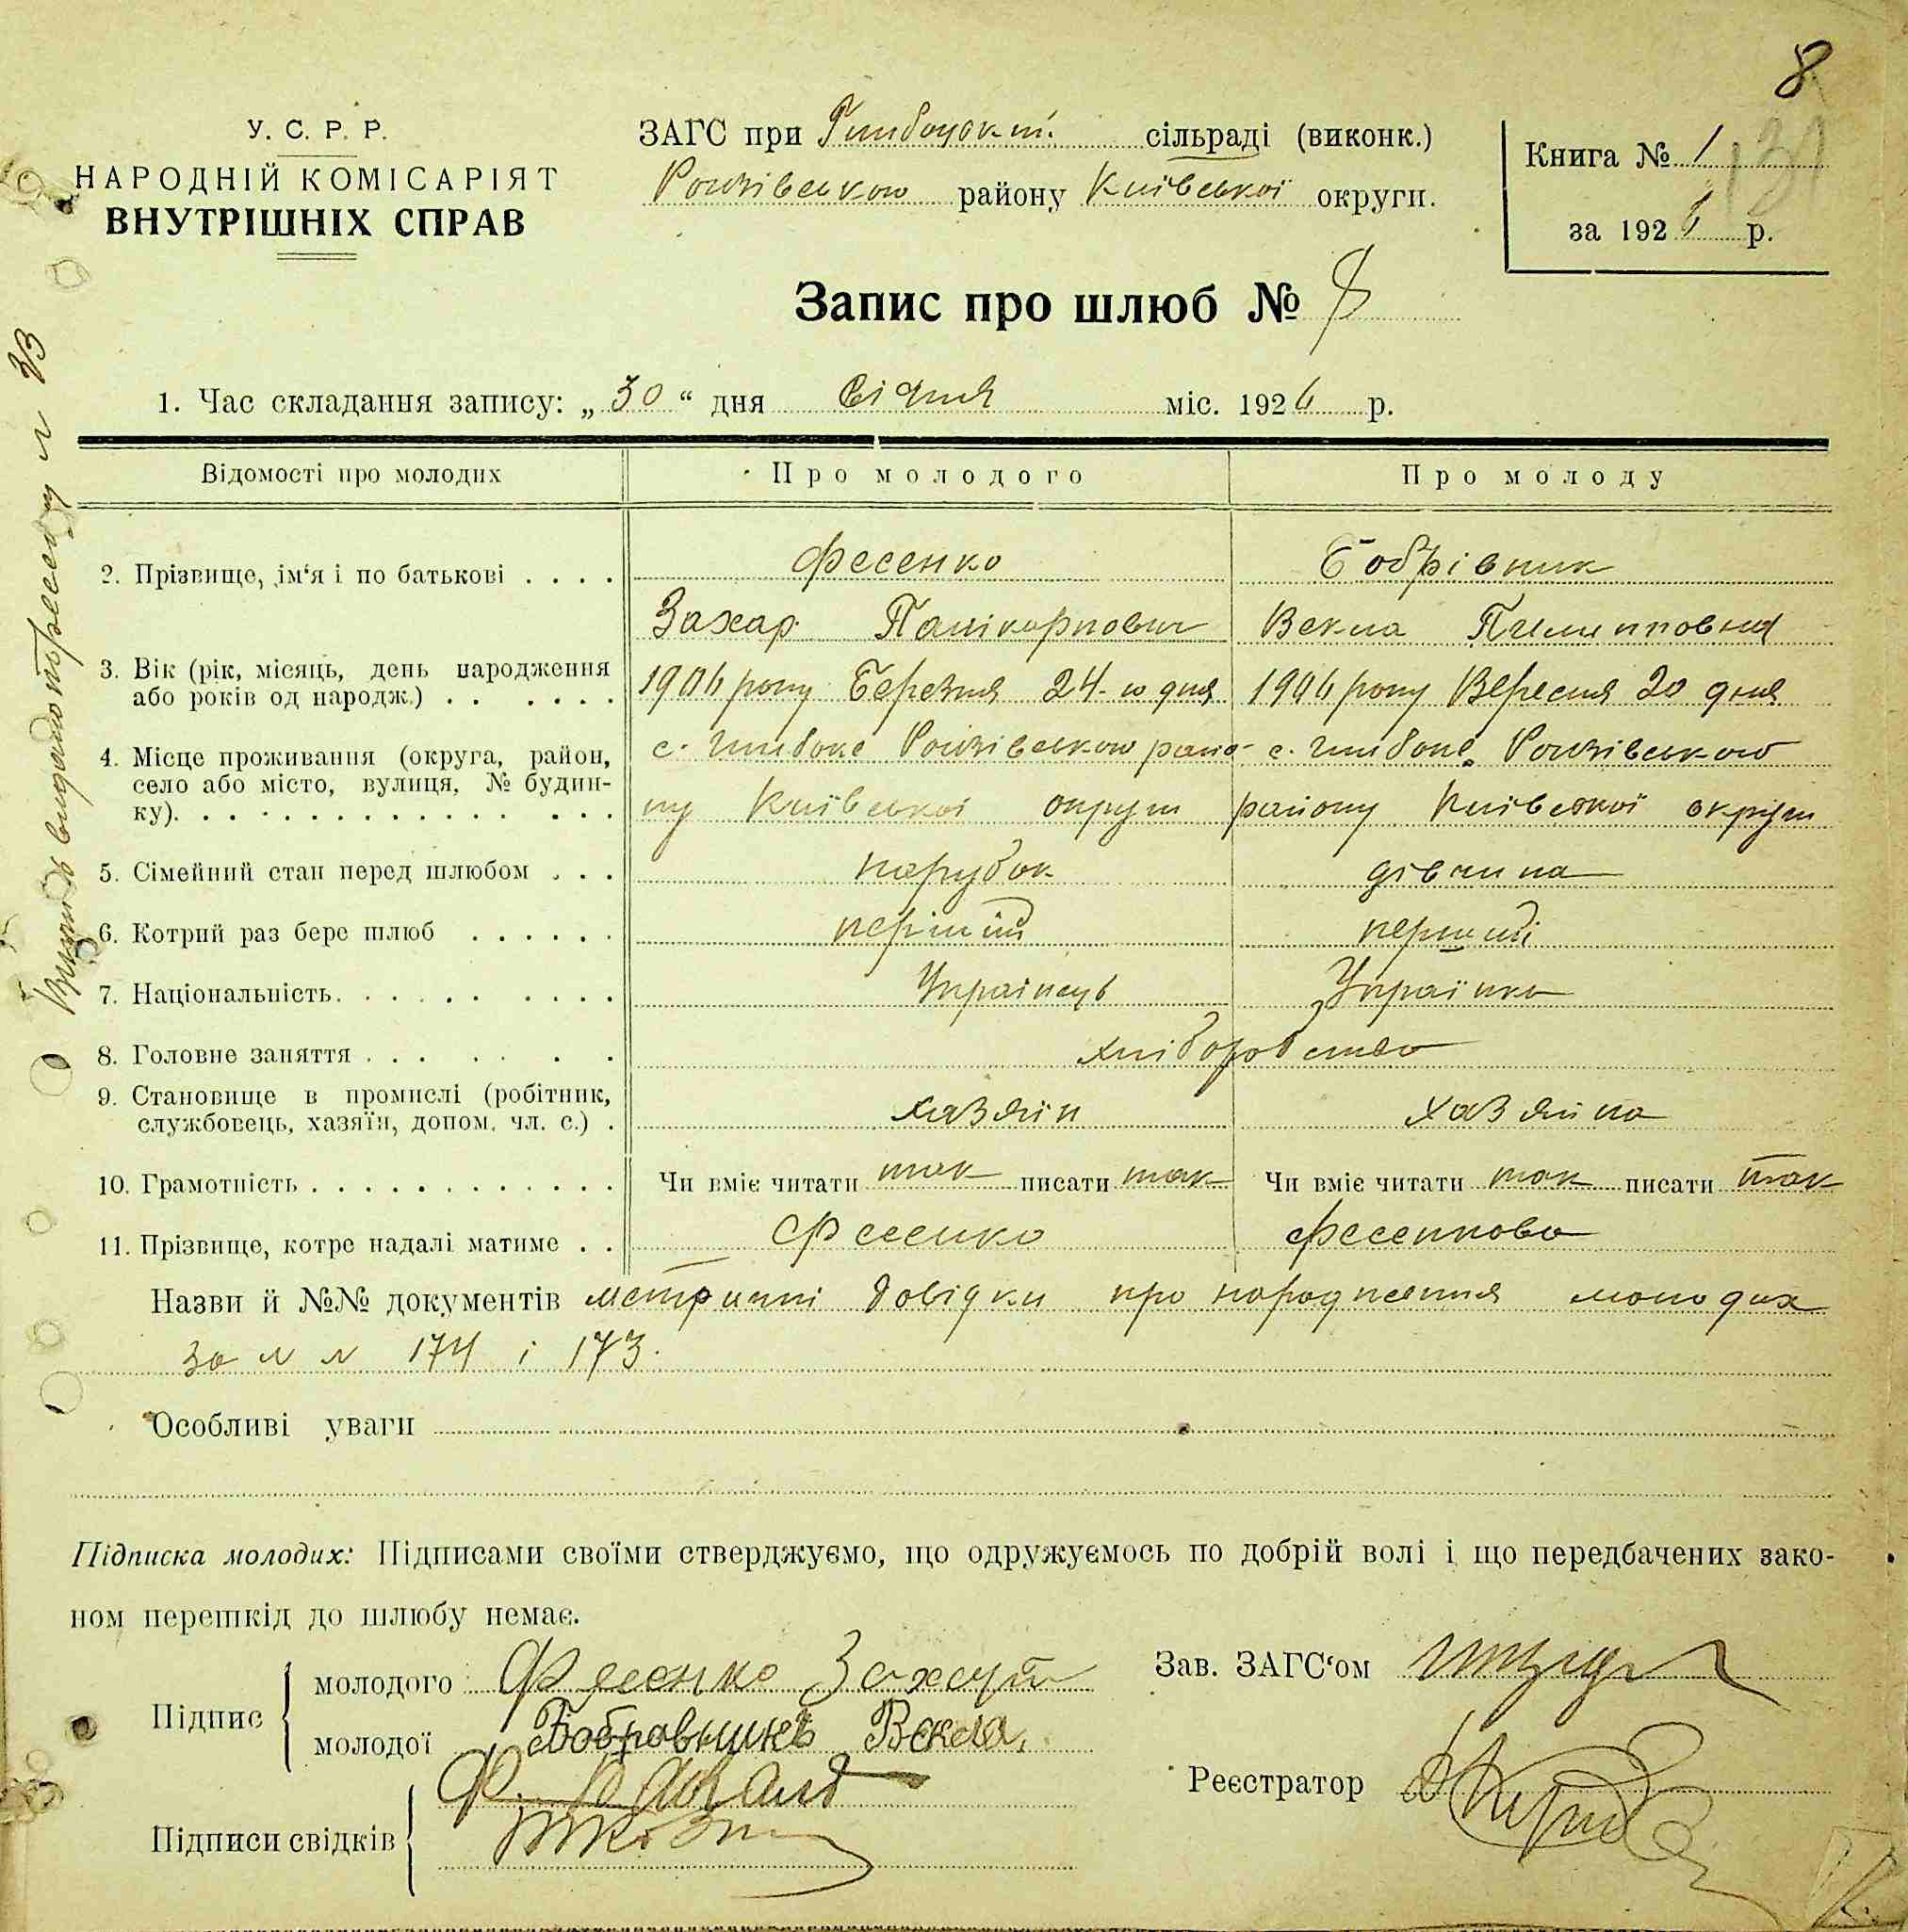 8
У. С. Р. Р.
НАРОДНІЙ КОМІСАРІЯТ
ВНУТРІШНІХ СПРАВ
ЗАГС при Глибоцькій сільраді (виконк.)
Рогізівського району Київської округи.
Книга № 1
за 1926 р.
Запис про шлюб № 8
1. Час складання запису: „30“ дня Січня міс. 1926 р.
Відомості про молодих Про молодого Про молоду
2. Прізвище, ім‘я і по батькові . . . . Фесенко Бобрівник
Захар Панікарпович Векла Пилиповна
3. Вік (рік, місяць, день народження 1906 року Березня 24-го дня 1906 року Вересня 20 дня
або років од народж.) . . . . . .
4. Місце проживання (округа, район, с. Глибоке Рогізівського райо- с. Глибоке Рогізівського
село або місто, вулиця, № будин-
ку). ну Київської округи району Київської округи
5. Сімейний стан перед шлюбом . . . парубок дівчина
6. Котрий раз бере шлюб . . . . . . перший перший
7. Національність. . . . . . . . . Українець Українка
8. Головне заняття . . . . . . . хліборобство
9. Становище в промислі (робітник,
службовець, хазяїн, допом. чл. с.) . хазяїн хазяйна
10. Грамотність . . . . . . . . . . . . Чи вміє читати так писати так Чи вміє читати так писати так
11. Прізвище, котре надалі матиме . . Фесенко Фесенкова
Назви й №№ документів метричні довідки про народження молодих
за № № 174 і 173.
Особливі уваги
Підписка молодих: Підписами своїми стверджуємо, що одружуємось по добрій волі і що передбачених зако-
ном перешкід до шлюбу немає.
Підпис
молодого Фесенко Захар
молодої Бобровникъ Векла.
Підписи свідків
Зав. ЗАГС‘ом
Реєстратор